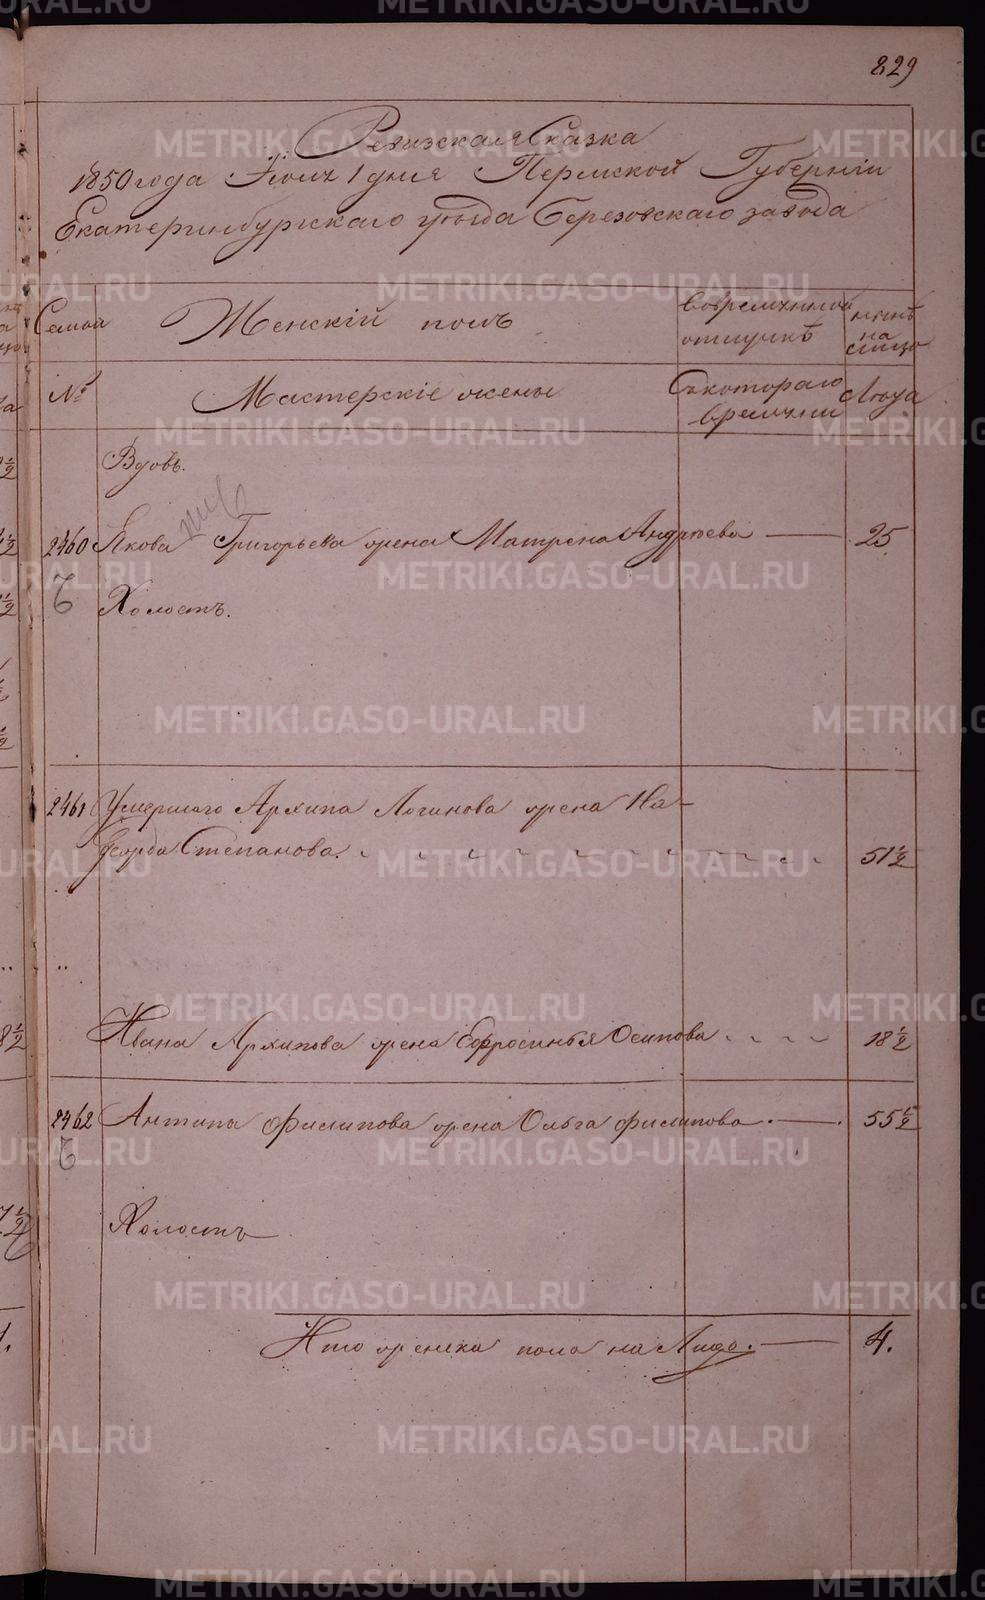 829
Ревизская Сказка
1850 года Июля 1 дня Пермской Губерніи
Екатеринбургскаго уѣзда Березовскаго завода
Семьи
Женскій полъ
Во временной
отлучкѣ
нынѣ
на
лицо
№
Мастерскіе жены
Съ котораго
времени
Лѣта
Вдовъ.
2460 Якова Григорьева жена Матрена Андреева 25
Холостъ.
2461 Умершаго Архипа Логинова жена На-
Степанова. 51 ½
Ивана Архипова жена Ефросинья Осипова 18 ½
2462 Антипа Филипова жена Ольга Филипова. 55 ½
Холостъ
Итого женска пола на Лицо. 4.
METRIKI.GASO-URAL.RU